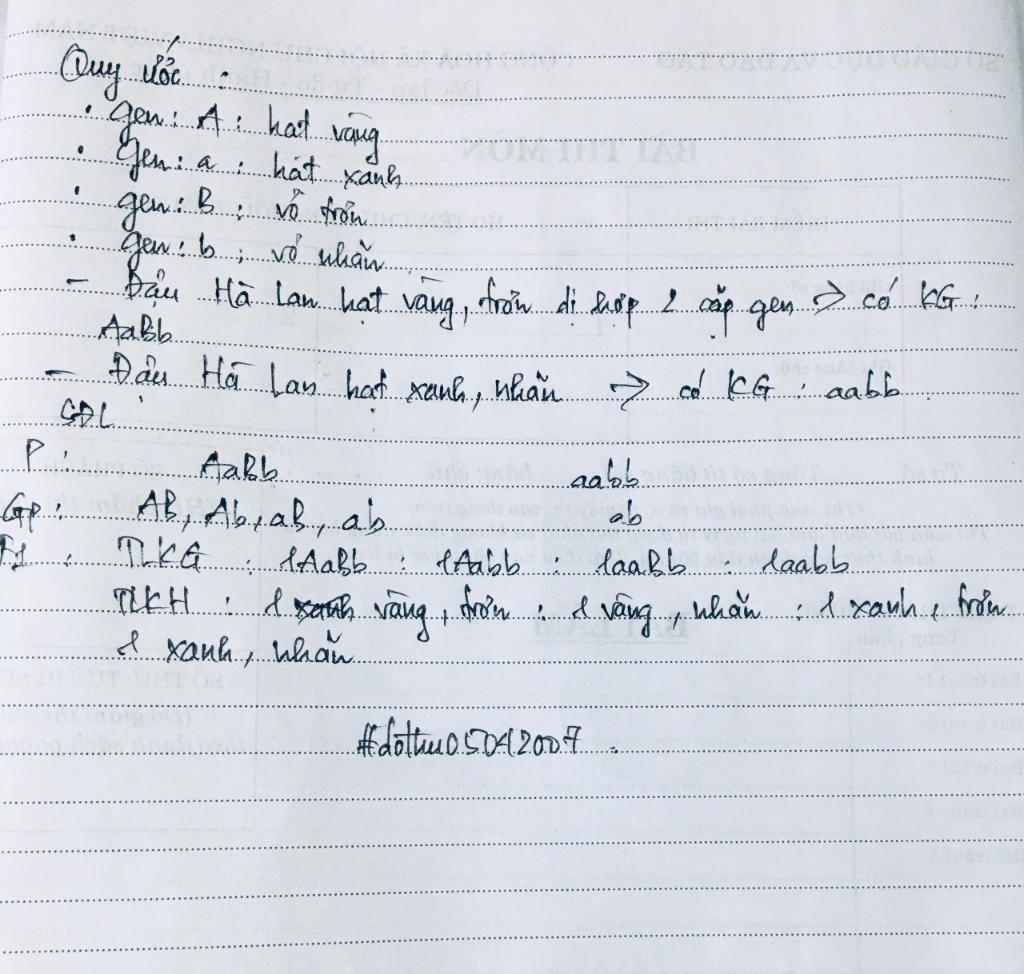 Quy ước :
• gen: A : hạt vàng
• gen: a : hạt xanh
• gen: B : vỏ trơn
• gen: b : vỏ nhăn
- Đậu Hà Lan hạt vàng, trơn dị hợp 2 cặp gen => có KG :
AaBb
- Đậu Hà Lan hạt xanh, nhăn => có KG : aabb
SĐL
P : AaBb aabb
Gp : AB, Ab, aB, ab ab
F1 : TLKG : 1AaBb : 1Aabb : 1aaBb : 1aabb
TLKH : 1 vàng, trơn : 1 vàng, nhăn : 1 xanh, trơn
1 xanh, nhăn
SỞ GIÁO DỤC VÀ ĐÀO TẠO
BÀI THI MÔN
BÀI LÀM